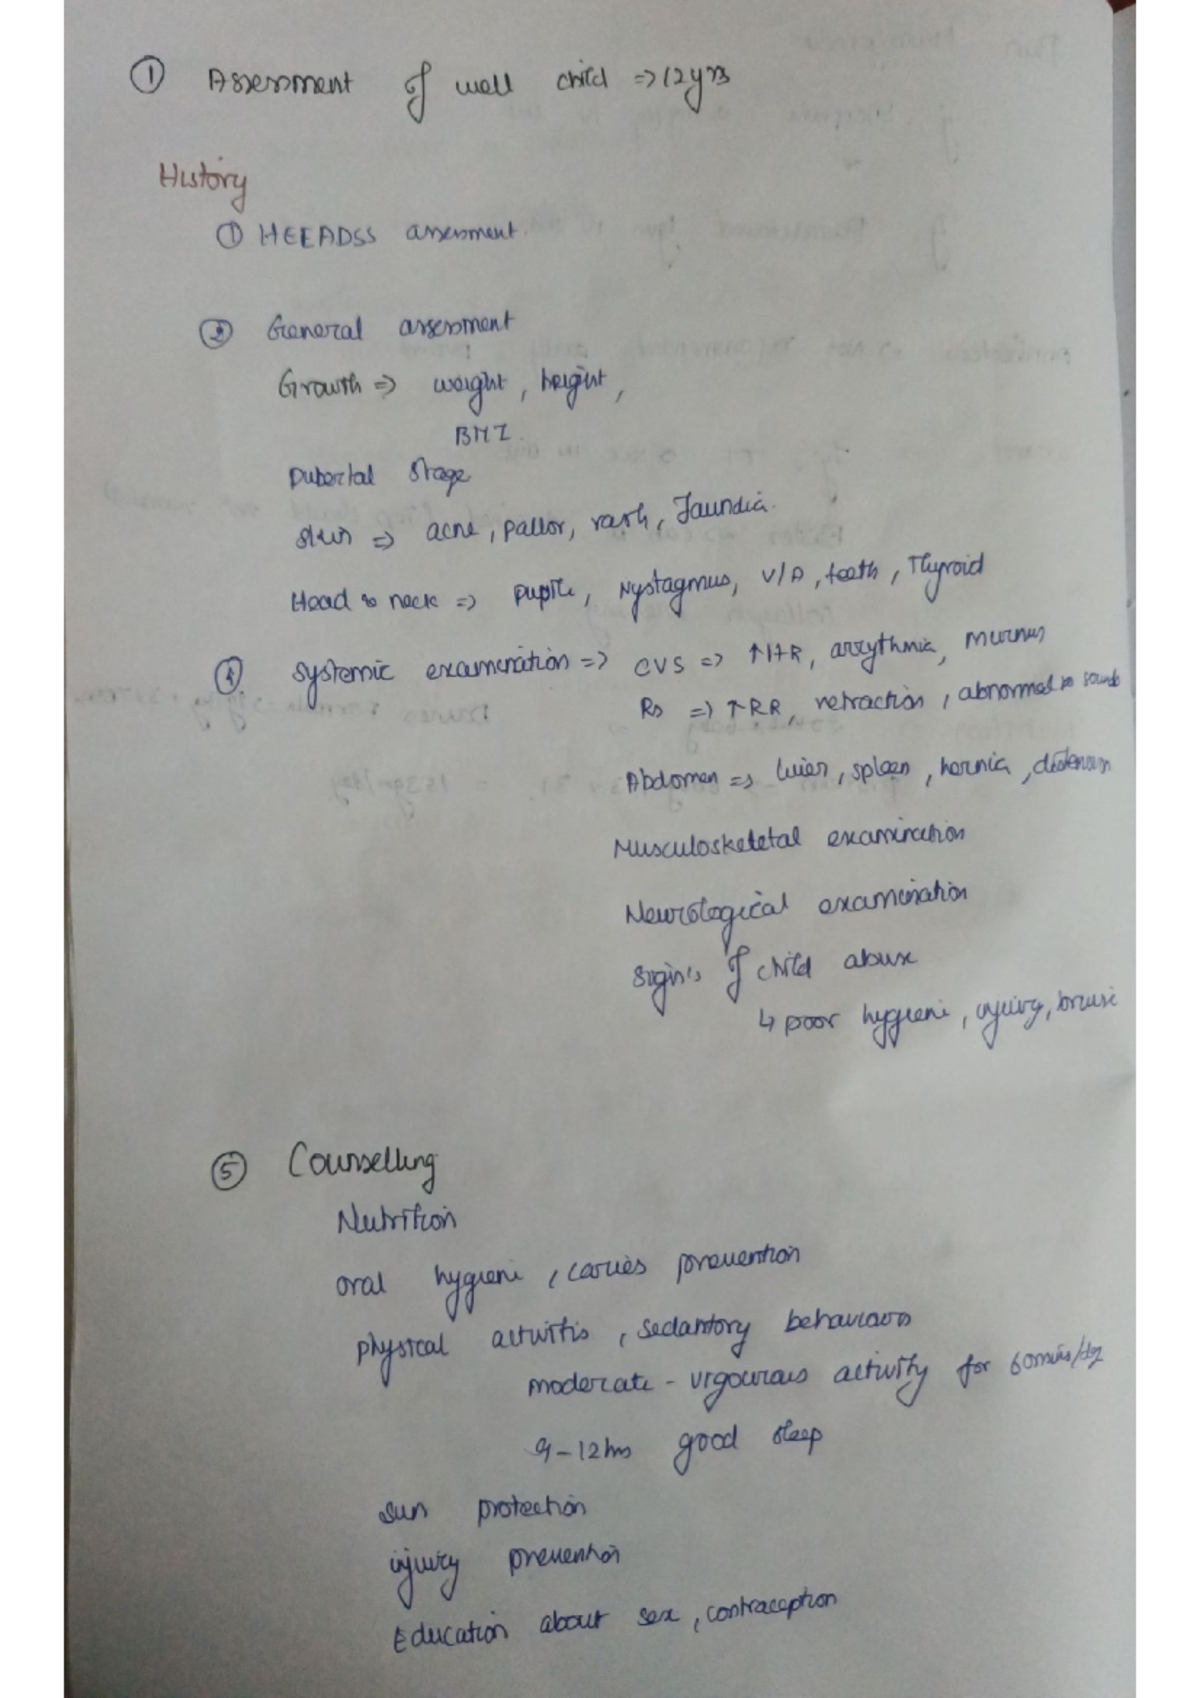 ① Assessment of well child => 12yrs
History
① HEEADSS assessment
② General assessment
Growth => weight, height,
BMI
Pubertal stage
Skin => acne, pallor, rash, Jaundice
Head & neck => pupile, Nystagmus, V/A, teeth, Thyroid
④ Systemic examination => CVS => ↑HR, arrythmia, murmus
Rs => ↑RR, retraction, abnormal sounds
Abdomen => liver, spleen, hernia, distension
Musculoskeletal examination
Neurological examination
Sign's of child abuse
↳ poor hygiene, injury, bruise
⑤ Counselling
Nutrition
oral hygiene, caries prevention
physical activitis, sedantory behaviours
moderate - vigourous activity for 60mins/day
9-12hrs good sleep
Sun protection
injury prevention
Education about sex, contraception